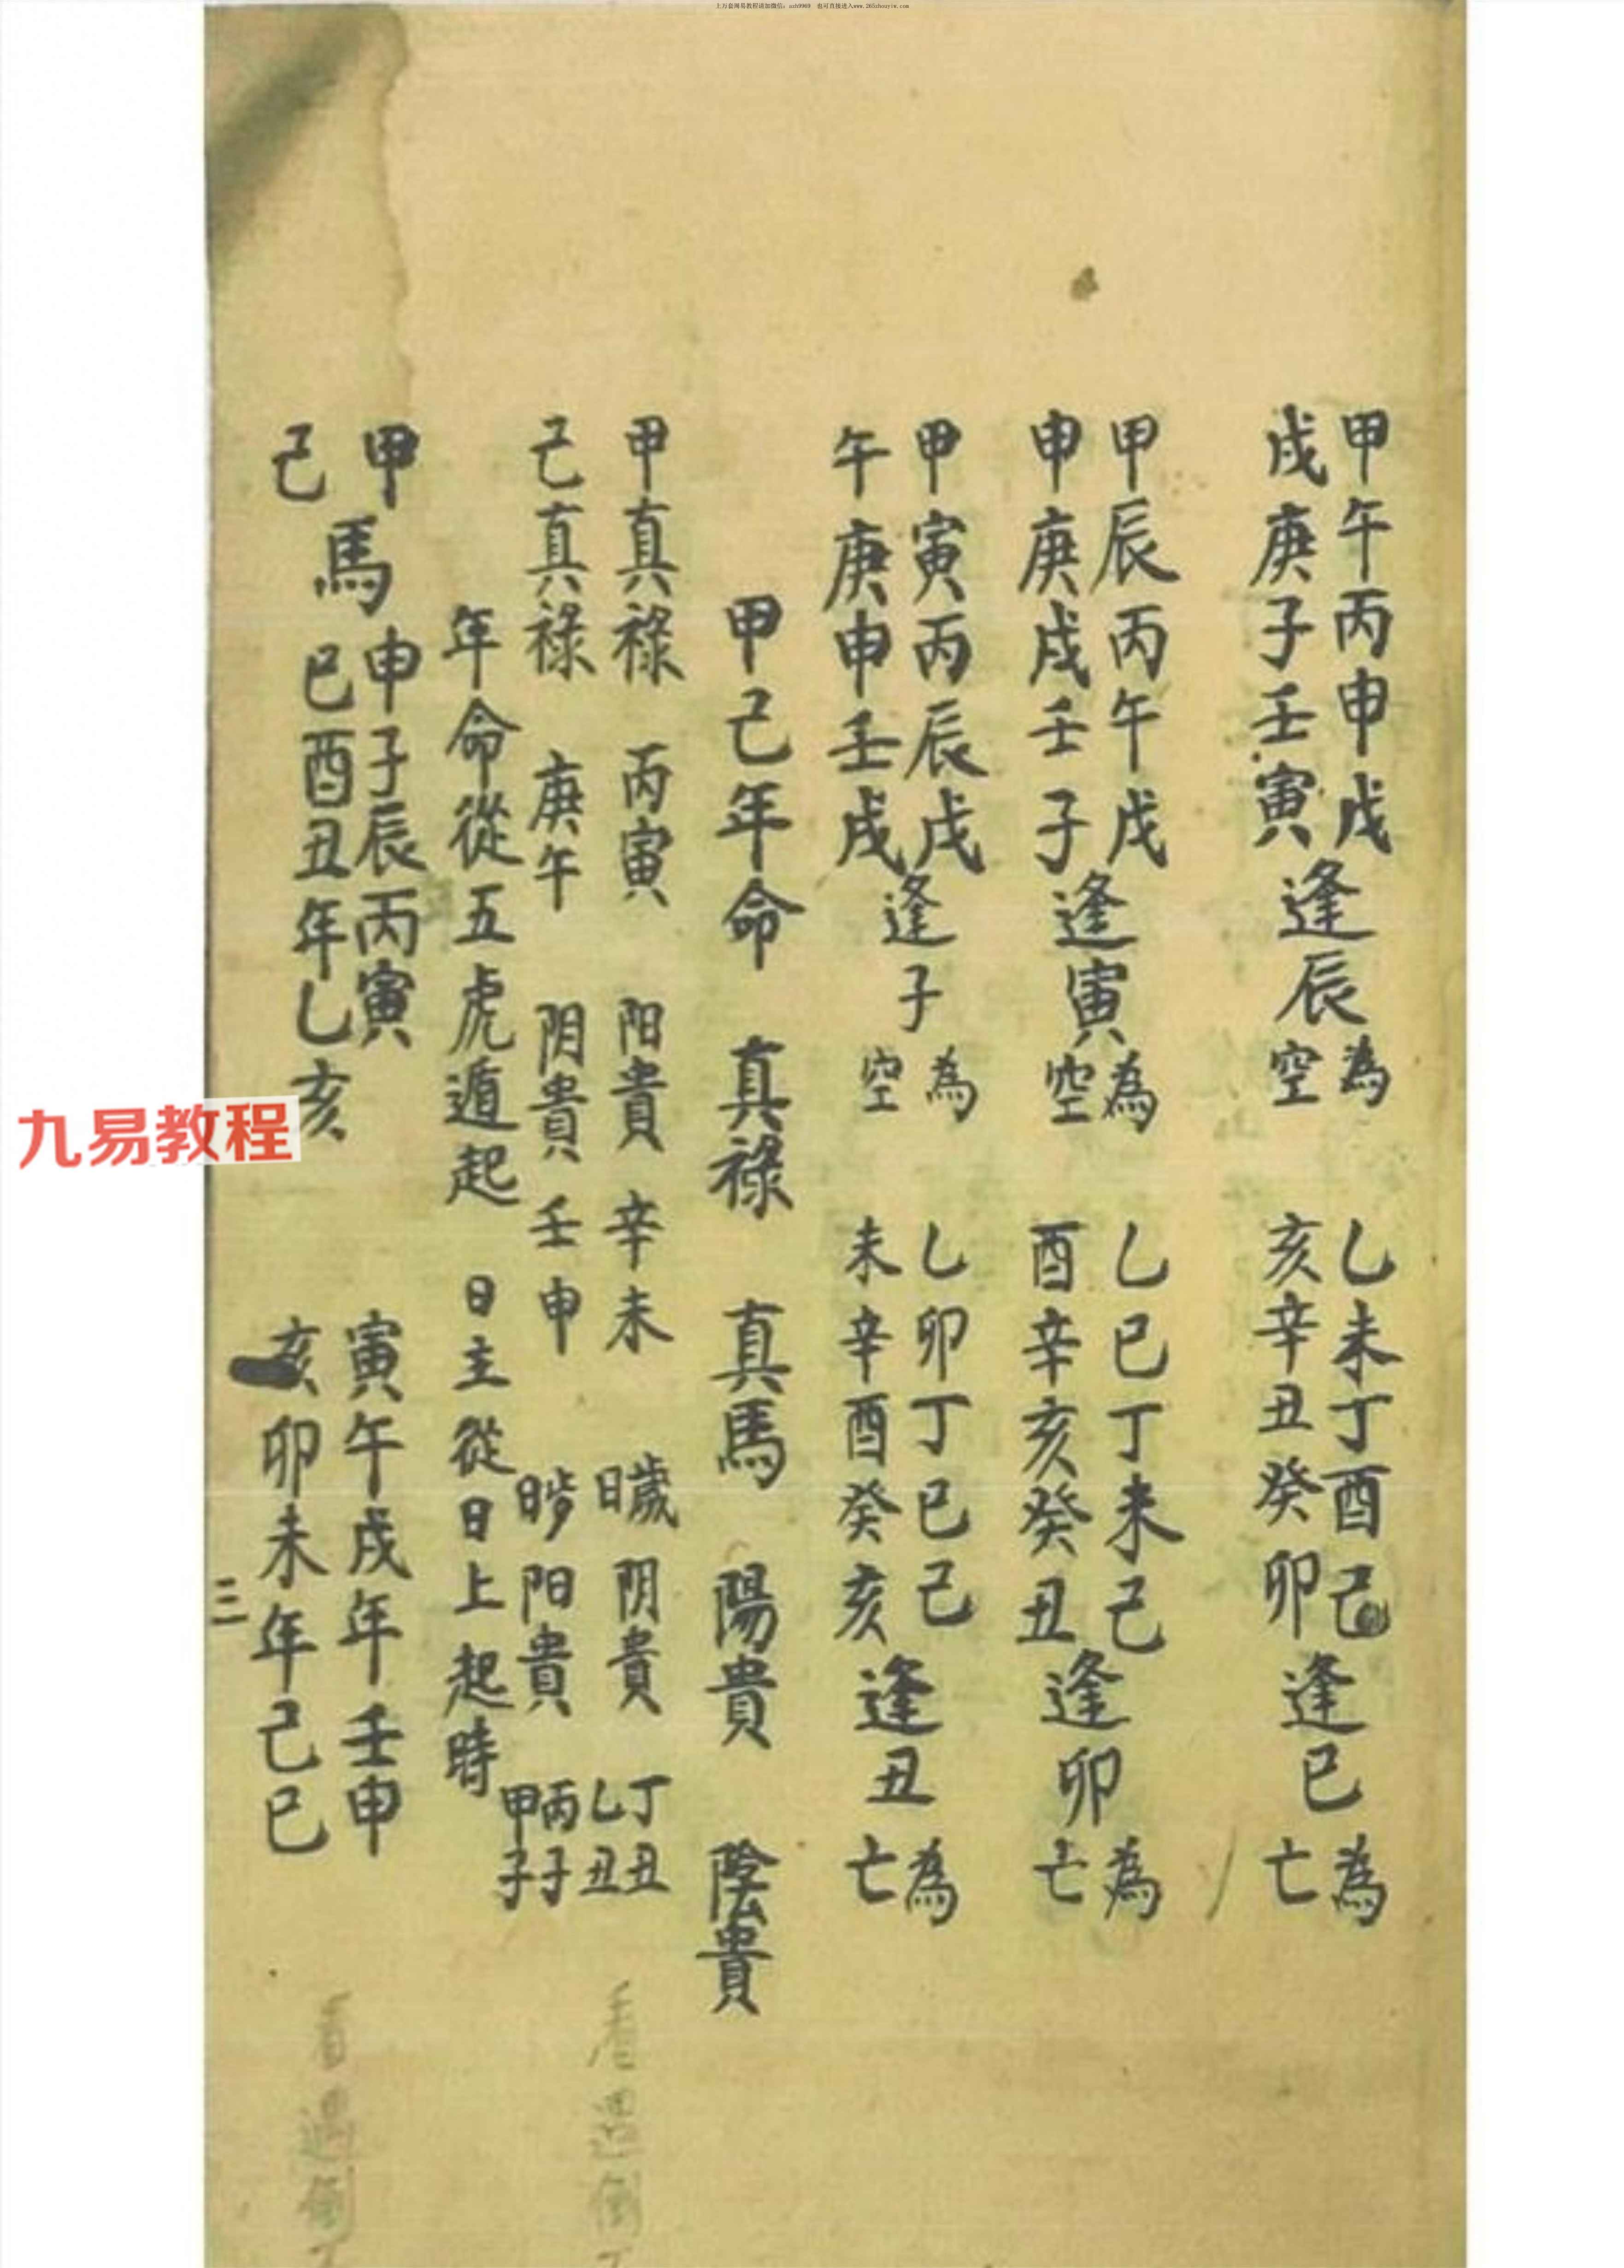 上万套周易教程请加微信：azh9969 也可直接进入www.265zhouyim.com
甲午丙申戊
戌庚子壬寅
逢辰
為
空
乙未丁酉己
亥辛丑癸卯
逢巳
為
亡
甲辰丙午戊
申庚戌壬子
逢寅
為
空
乙巳丁未己
酉辛亥癸丑
逢卯
為
亡
甲寅丙辰戊
午庚申壬戌
逢子
為
空
乙卯丁巳己
未辛酉癸亥
逢丑
為
亡
甲己年命 真祿 真馬 陽貴 陰貴
甲真祿 丙寅 阳貴 辛未 日歲 阴貴 丁丑 乙丑
己真祿 庚午 阴貴 壬申 阳貴 丙子 甲子
年命從五虎遁起 日主從日上起時
甲
己
馬
申子辰丙寅
巳酉丑年乙亥
寅午戌年壬申
亥卯未年己巳
三
九易教程
看遇倒
看遇倒